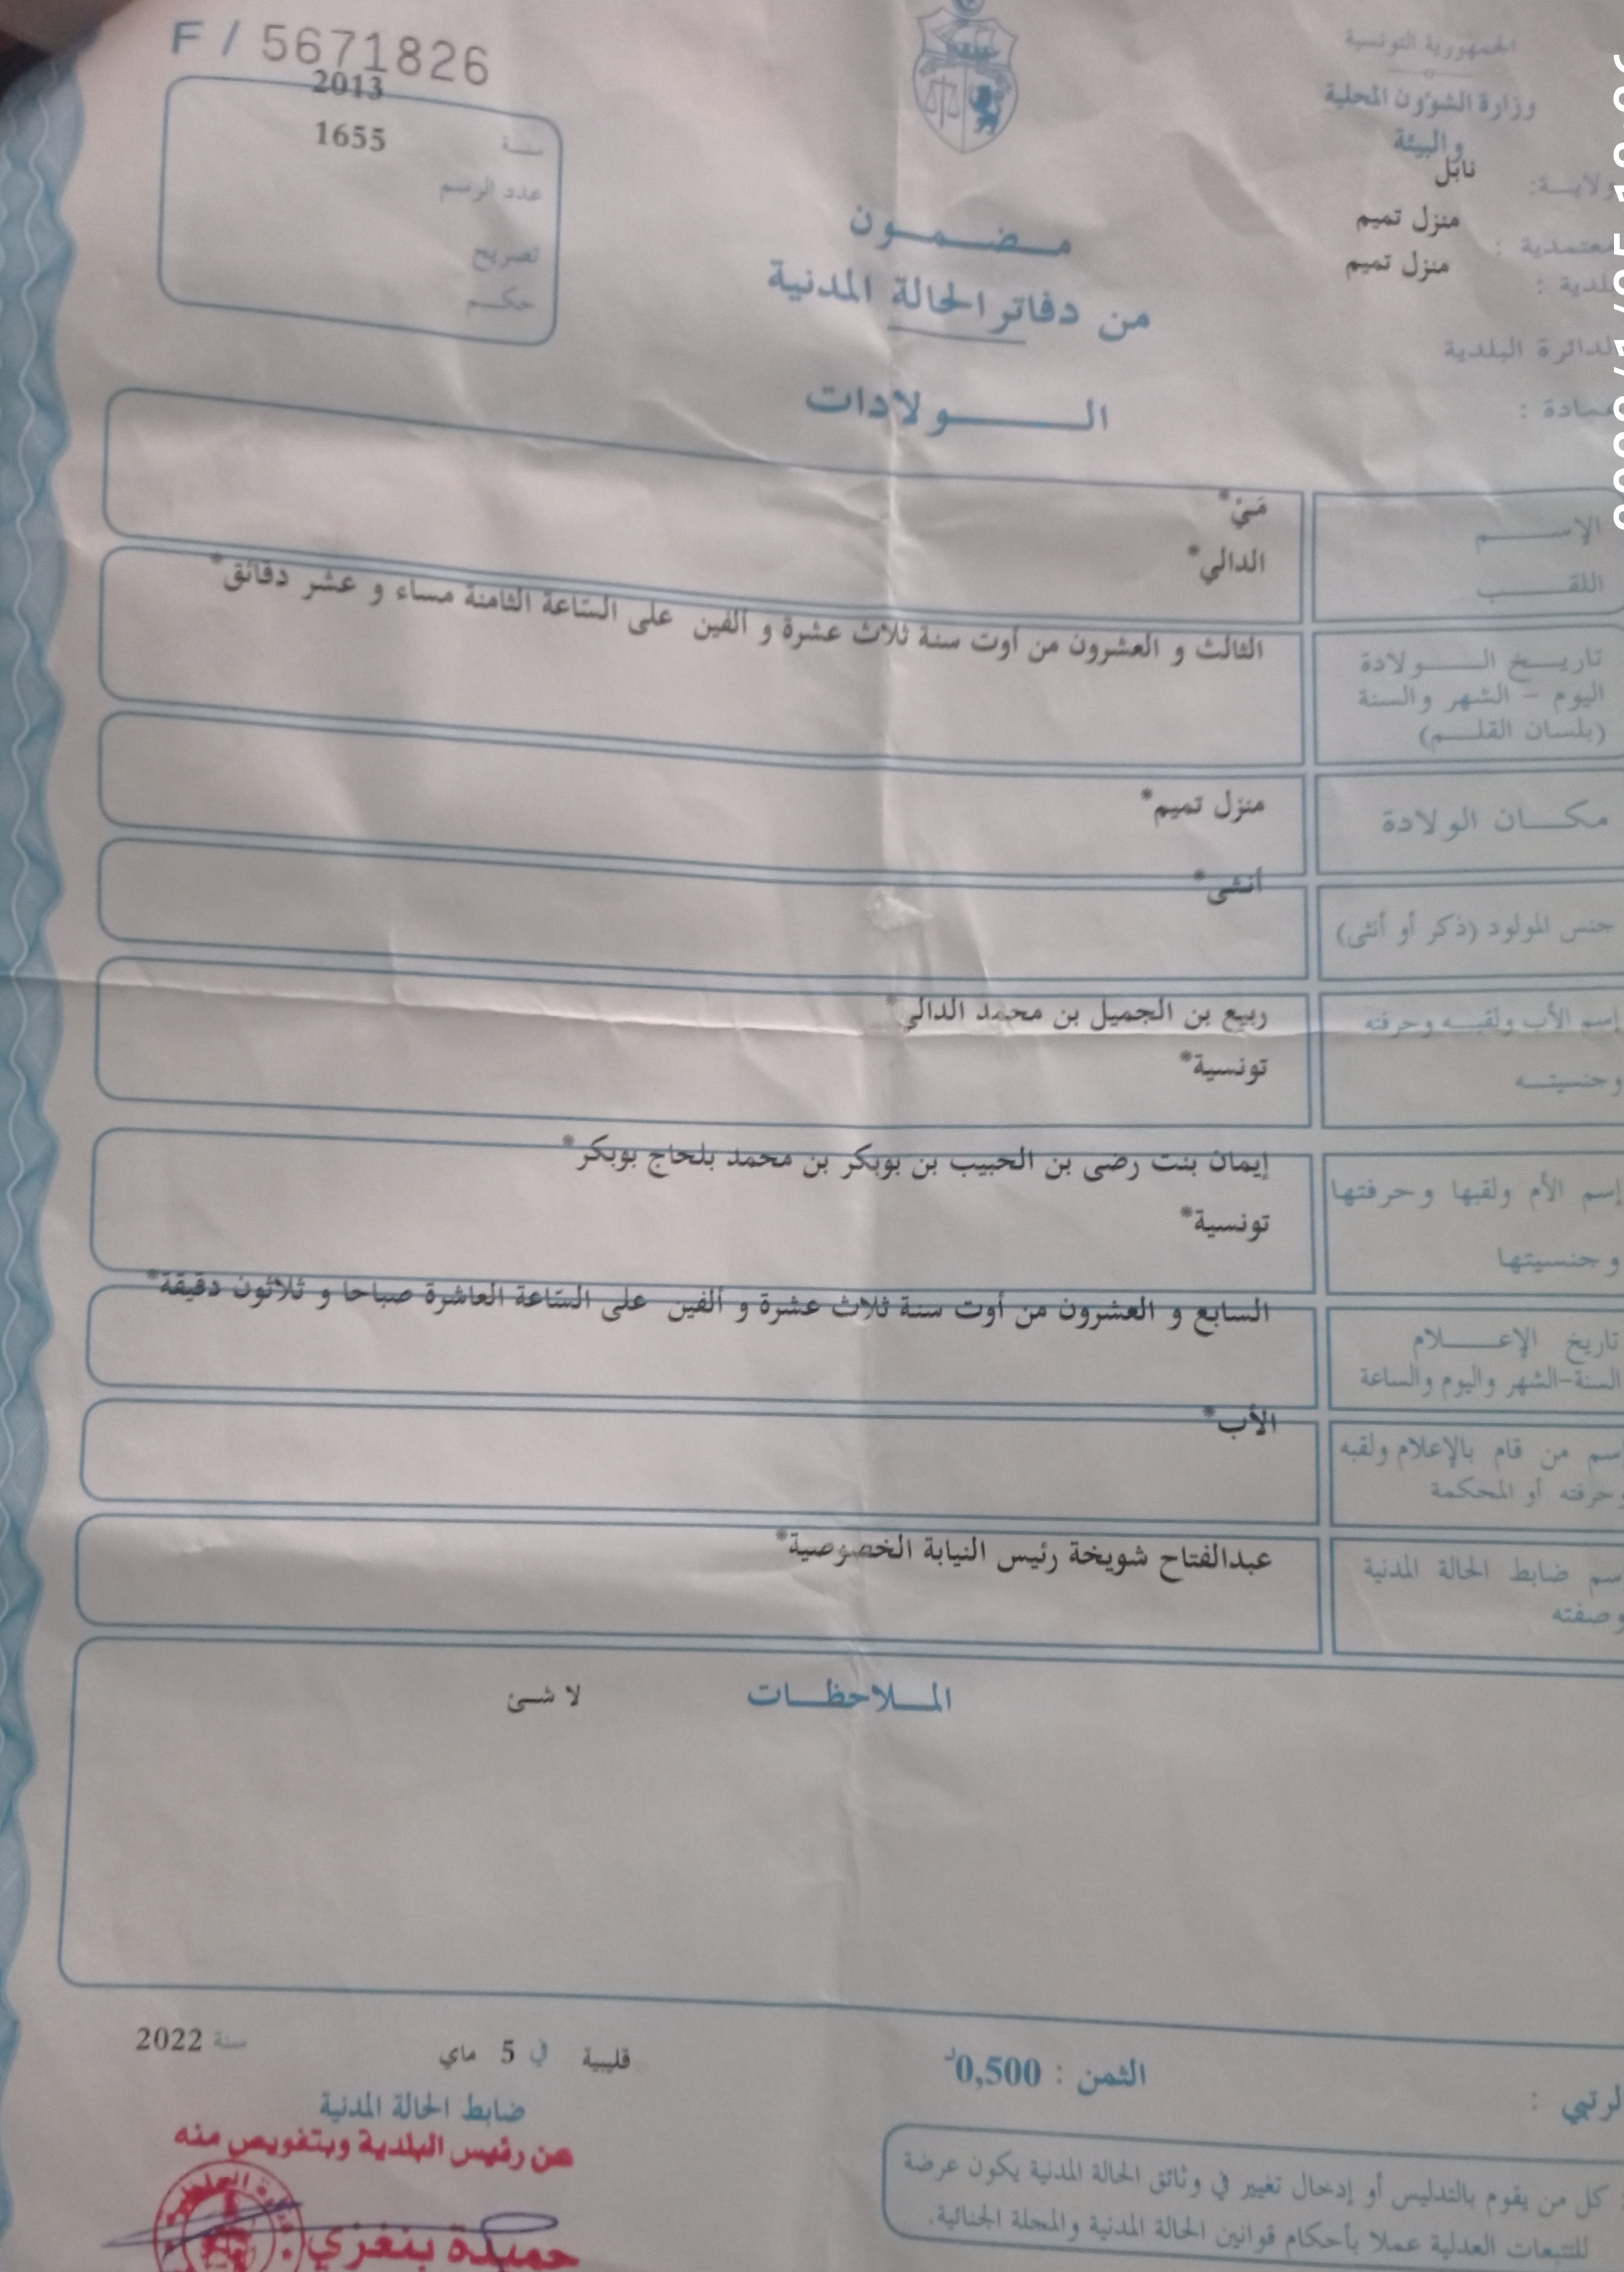 F / 5671826
الجمهورية التونسية
وزارة الشؤون المحلية
والبيئة
ولاية: نابل
معتمدية : منزل تميم
بلدية : منزل تميم
الدائرة البلدية
عمادة :
سنة 2013
عدد الرسم 1655
تصريح
حكم
مضمون
من دفاتر الحالة المدنية
الولادات
الإسم مَيْ*
اللقب الدالي*
تاريخ الولادة
اليوم - الشهر والسنة
(بلسان القلم)
الثالث و العشرون من أوت سنة ثلاث عشرة و ألفين على السّاعة الثامنة مساء و عشر دقائق*
مكان الولادة منزل تميم*
جنس المولود (ذكر أو أنثى) أنثى*
إسم الأب ولقبه وحرفته ربيع بن الجميل بن محمد الدالي*
وجنسيته تونسية*
إسم الأم ولقبها وحرفتها إيمان بنت رضى بن الحبيب بن بوبكر بن محمد بلحاج بوبكر*
وجنسيتها تونسية*
تاريخ الإعلام
السنة-الشهر واليوم والساعة
السابع و العشرون من أوت سنة ثلاث عشرة و ألفين على السّاعة العاشرة صباحا و ثلاثون دقيقة*
إسم من قام بالإعلام ولقبه
وحرفته أو المحكمة
الأب*
إسم ضابط الحالة المدنية
وصفته
عبدالفتاح شويخة رئيس النيابة الخصوصية*
الملاحظات لا شئ
قليبية في 5 ماي سنة 2022
الثمن : 0,500د
ضابط الحالة المدنية
عن رئيس البلدية وبتفويض منه
حميدة بنغزي
كل من يقوم بالتدليس أو إدخال تغيير في وثائق الحالة المدنية يكون عرضة
للتتبعات العدلية عملا بأحكام قوانين الحالة المدنية والمجلة الجنائية.